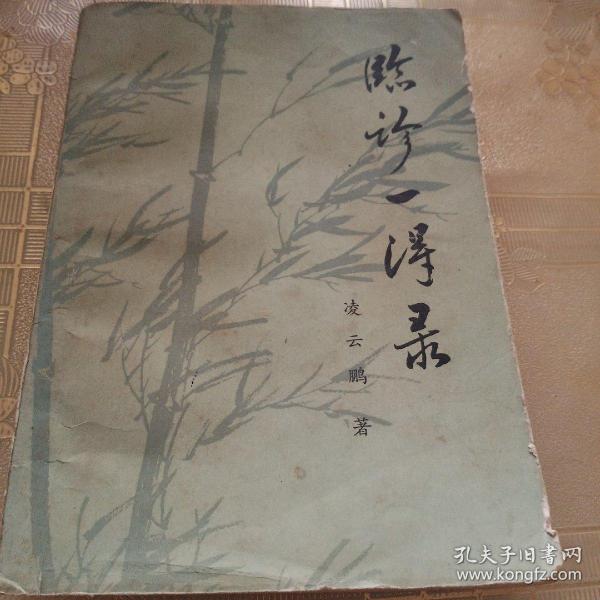 臨诊一得录
凌云鹏 著
孔夫子旧书网
www.kongfz.com